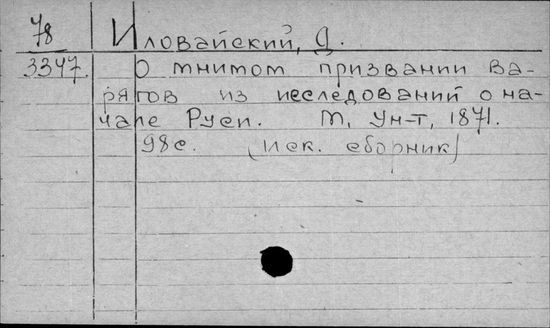 78 Иловайский, Д.
3347. О мнимом призвании ва-
рягов из исследований о на-
чале Руси. М, Ун-т, 1871.
98с. (Иск. сборник)